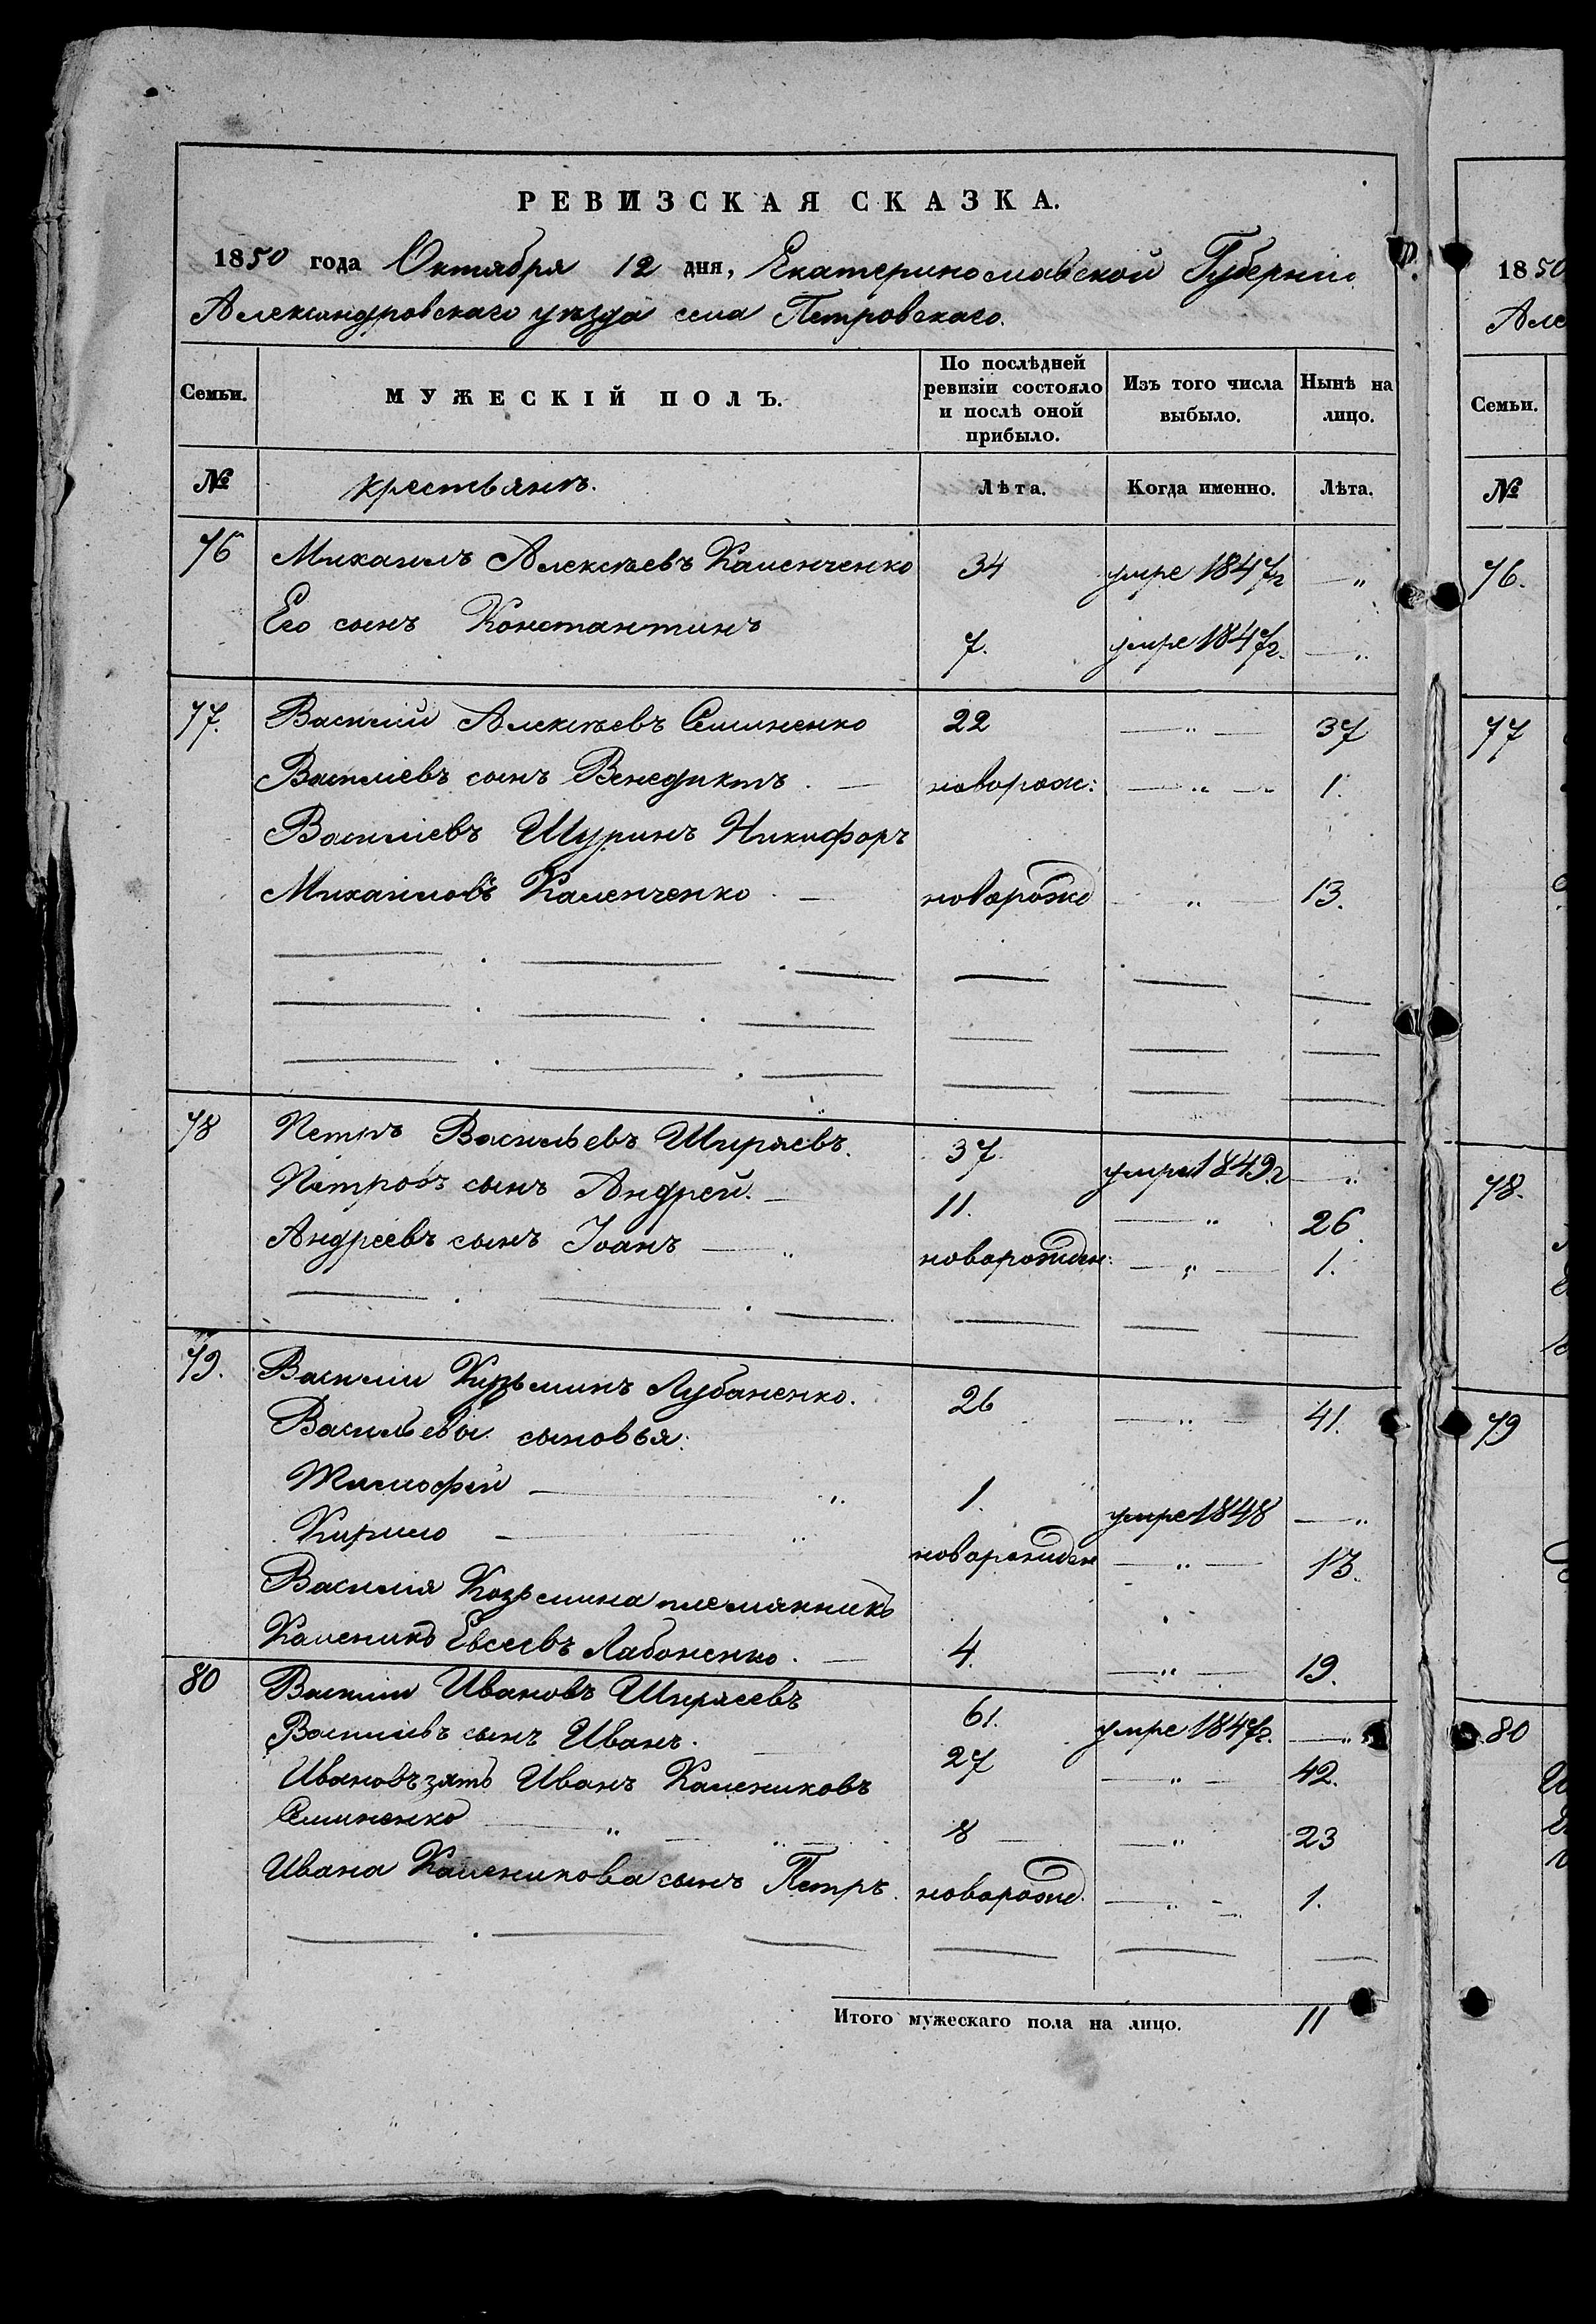 РЕВИЗСКАЯ СКАЗКА.
1850 года Октября 12 дня, Екатеринославской Губерніи
Александровскаго уѣзда села Петровскаго.
Семьи. МУЖЕСКІЙ ПОЛЪ. По послѣдней ревизіи состояло и послѣ оной прибыло. Изъ того числа выбыло. Нынѣ на лицо.
№ крестьянъ. Лѣта. Когда именно. Лѣта.
76 Михаилъ Алексѣевъ Каменченко 34 умре 1847г — "
Его сынъ Константинъ 7. умре 1847г. — "
77. Василий Алексѣевъ Семиненко 22 — " — 37
Василіевъ сынъ Венедиктъ. — новорож: — " — 1.
Василіевъ Шуринъ Никифоръ
Михаиловъ Каменченко — новорожд — " — 13.
78 Петръ Васильевъ Ширяевъ. 37. умре 1849г — "
Петровъ сынъ Андрей. — 11. — " 26.
Андреевъ сынъ Іоанъ — " новорожден: — " — 1.
79. Василии Кузьминъ Лубаненко. 26 — " — 41.
Васильевы сыновья:
Тимофей — " 1. умре 1848 — "
Кирило — " новорожден — " — 13.
Василія Козьмина племянникъ
Каленикъ Евсеевъ Лабоненко. — 4. — " — 19.
80 Василии Ивановъ Ширяевъ 61. умре 1847г. — "
Василіевъ сынъ Иванъ. 27 — " — 42.
Ивановъ зять Иванъ Калениковъ
Семиненко — " — " — 8 — " 23
Ивана Каленикова сынъ Петръ. новорожд. — " — 1.
Итого мужескаго пола на лицо. 11
1850
Але
Семьи.
№
76.
77
78.
79
80